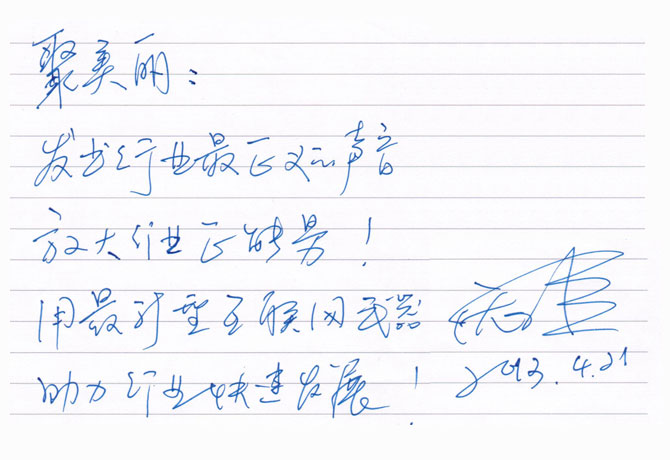 聚美丽:
发出行业最正义的声音
放大行业正能量!
用最新型互联网武器
助力行业快速发展!
2013.4.21